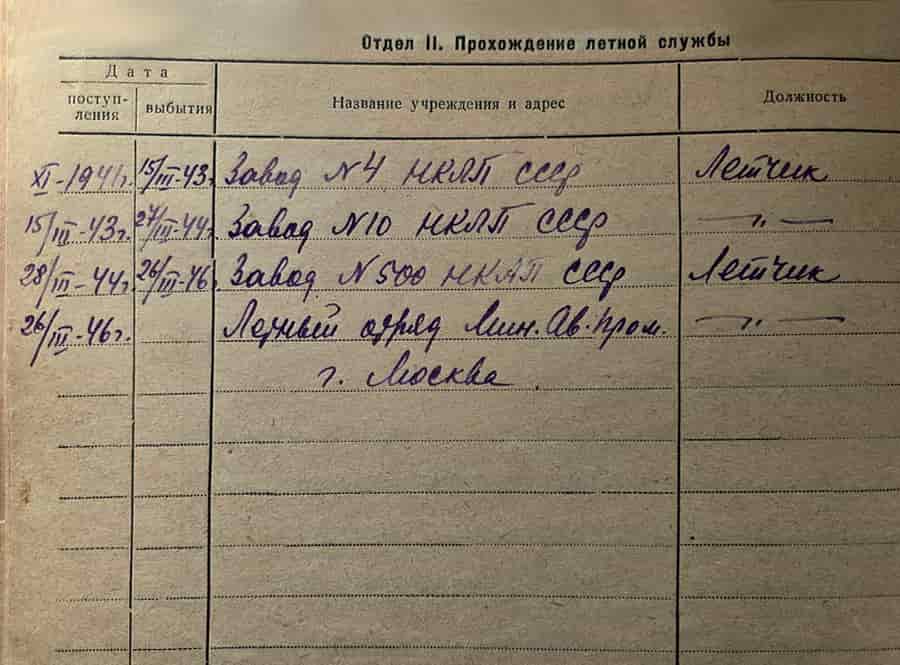 Отдел II. Прохождение летной службы
Дата
поступ-
ления
выбытия
Название учреждения и адрес
Должность
XI-1941г. 15/III-43. Завод N4 НКАП СССР Летчик
15/III-43г. 27/III-44г. Завод N10 НКАП СССР — „ —
28/III-44г. 26/III-46 Завод N500 НКАП СССР Летчик
26/III-46г. Летный отряд Мин. Ав. Пром. — „ —
г. Москва